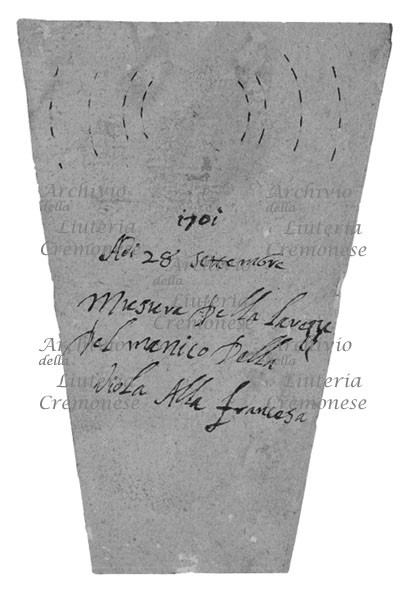 Archivio
della
Liuteria
Cremonese
Archivio
della
Liuteria
Cremonese
1701
Adi 28 settembre
Musura Della
Del manico Della
Viola Alla francesa
Archivio
della
Liuteria
Cremonese
Archivio
della
Liuteria
Cremonese
Archivio
della
Liuteria
Cremonese